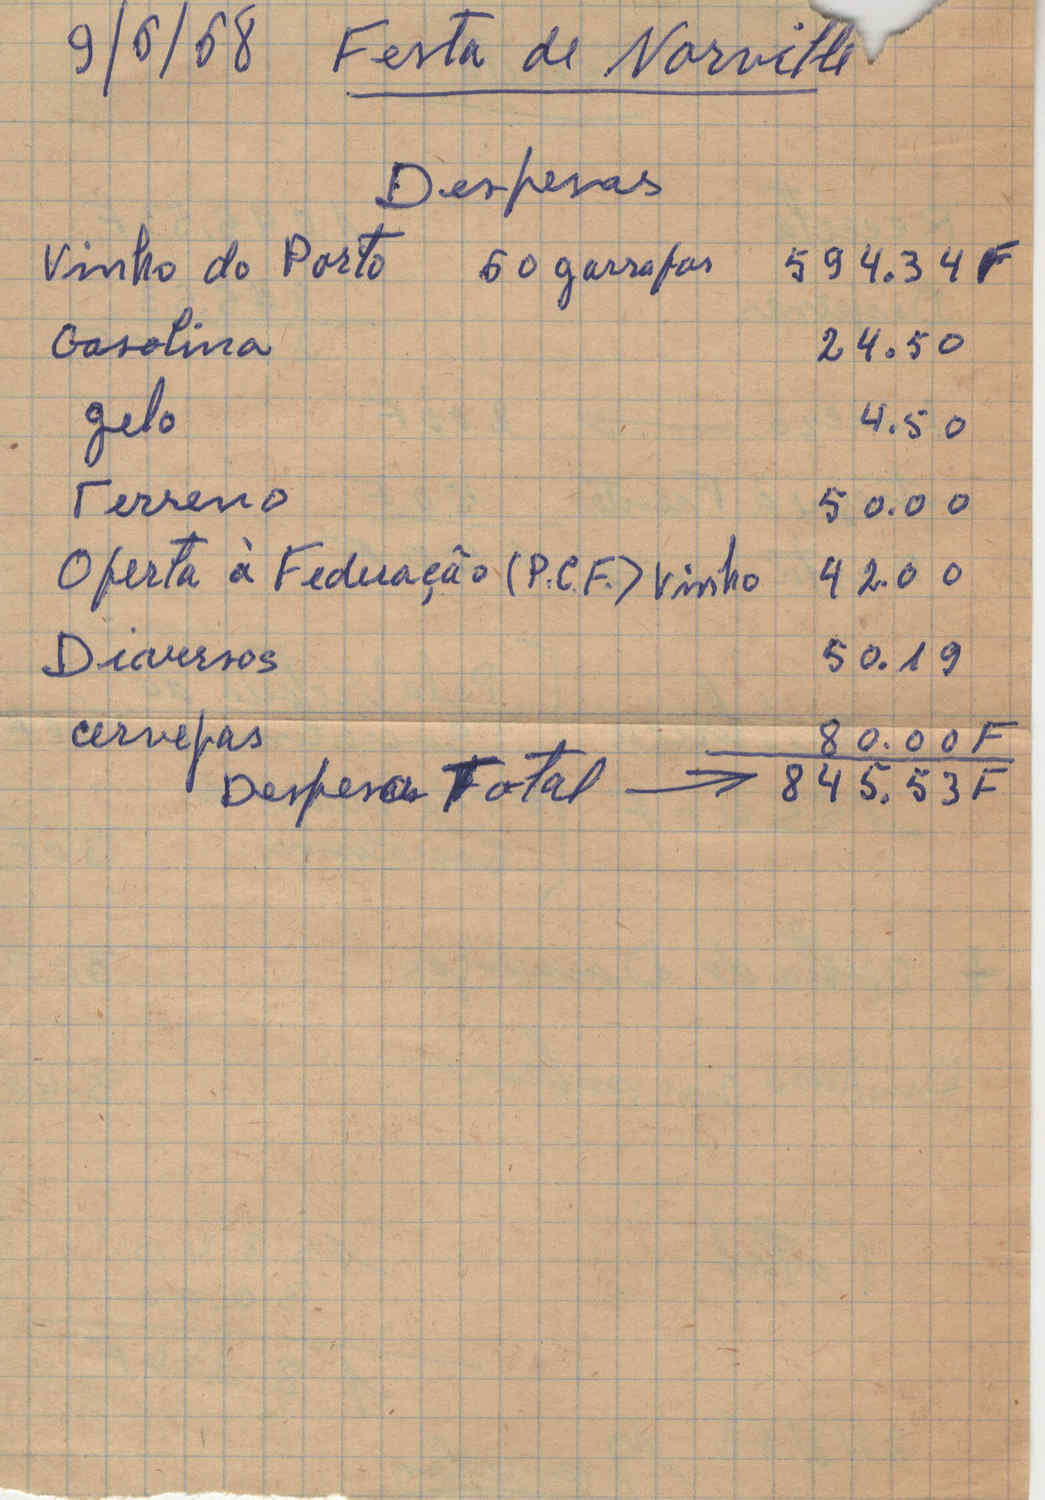 9/6/68 Festa de Norville
Despesas
Vinho do Porto 60 garrafas 594.34F
Gasolina 24.50
gelo 4.50
Terreno 50.00
Oferta à Federação (P.C.F.) Vinho 42.00
Diaversos 50.19
cervejas 80.00F
Despesas Total → 845.53F